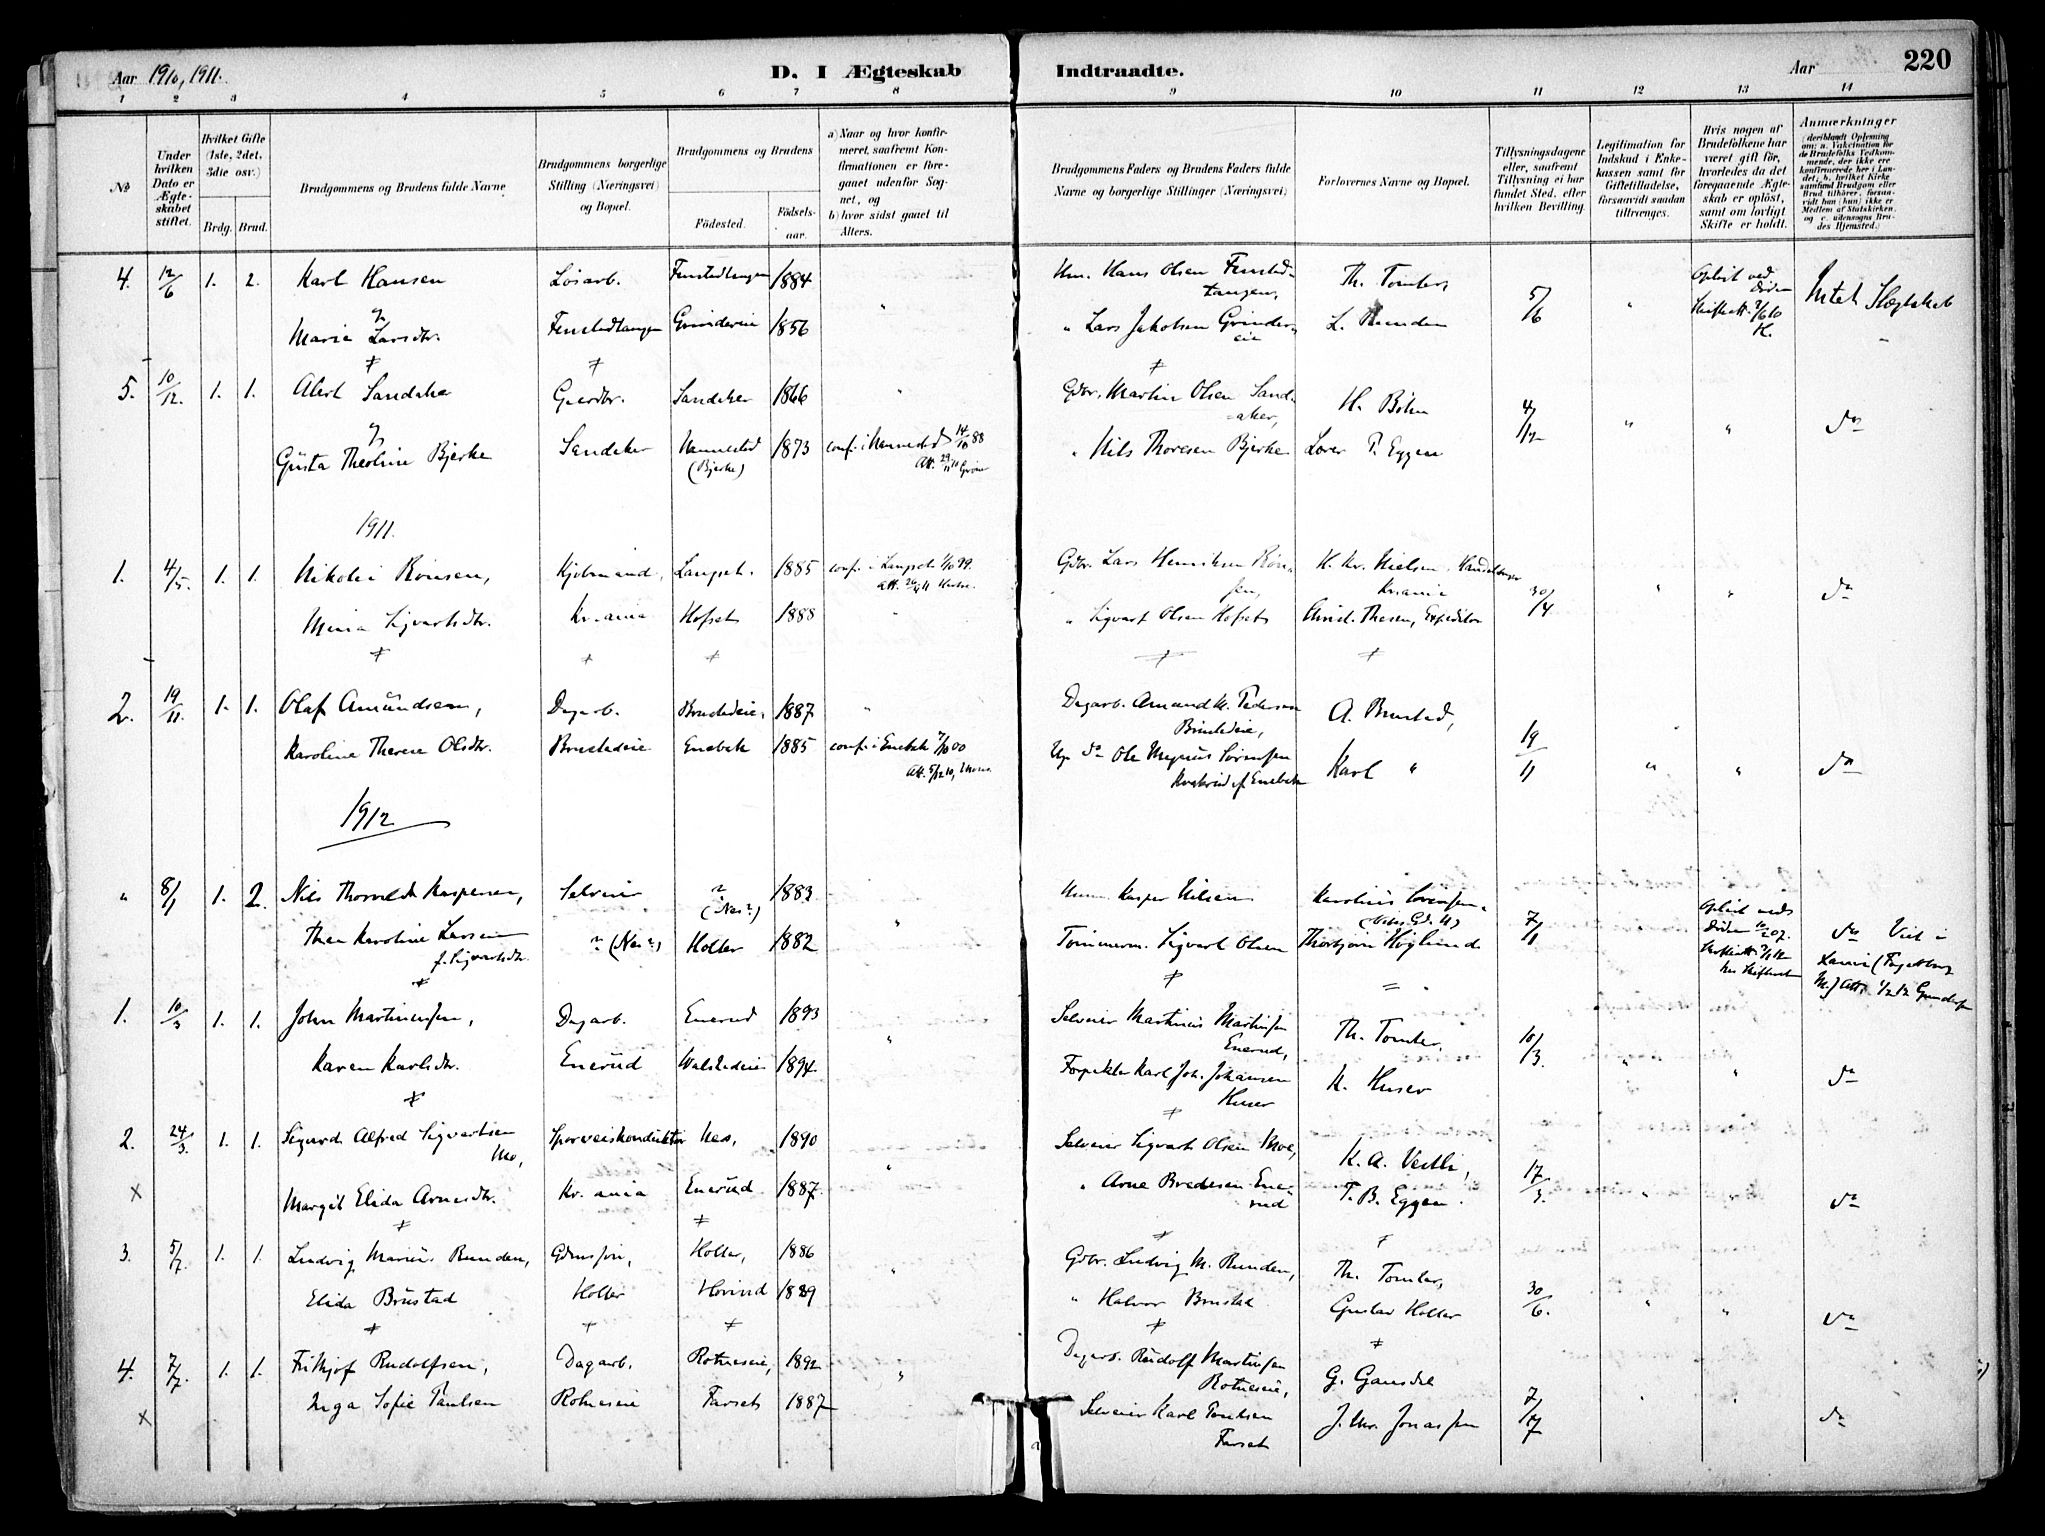 Aar 1910, 1911. D. I Ægteskab Indtraadte. Aar 220
1 2 3 4 5 6 7 8 9 10 11 12 13 14
No
Under hvilken Dato er Ægteskabet stiftet.
Hvilket Gifte (1ste, 2det, 3die osv.)
Brdg. Brud.
Brudgommens og Brudens fulde Navne
Brudgommens borgerlige Stilling (Næringsvei) og Bopæl.
Brudgommens og Brudens
Födested. Födselsaar.
a) Naar og hvor konfirmeret, saafremt Konfirmationen er foregaaet udenfor Sognet, og
b) hvor sidst gaaet til Alters.
Brudgommens Faders og Brudens Faders fulde Navne og borgerlige Stillinger (Næringsvei)
Forlovernes Navne og Bopæl.
Tillysningsdagene eller, saafremt Tillysning ei har fundet Sted, efter hvilken Bevilling.
Legitimation for Indskud i Enkekassen samt for Giftetilladelse, forsaavidt saadan tiltrænges.
Hvis nogen af Brudefolkene har været gift för, hvorledes da det foregaaende Ægteskab er oplöst, samt om lovligt Skifte er holdt.
Anmærkninger (deriblandt Oplysning om: a. Vakcination for de Brudefolks Vedkommende, der ikke ere konfirmerede her i Landet, b. hvilket Kirkesamfund Brudgom eller Brud tilhörer, forsaavidt han (hun) ikke er Medlem af Statskirken, og c. udensogns Brudes Hjemsted.)
4. 12/6 1. 2. Karl Hansen Løsarb. Fenstadtangen 1884 " Um. Hans Olsen Fenstadtangen, Th. Tomter, 5/6 " Opløst ved døden Intet Slægtskab
Marie Larsdtr. Fenstadtangen Grindereie 1856 " Lars Jakobsen Grindereie L. Runden
5. 10/12. 1. 1. Albert Sandaker Gaardbr. Sandaker 1866 " Gdbr. Martin Olsen Sandaker, H. Bøhn 4/12 " " do
Gusta Theoline Bjerke Sandaker Nannestad (Bjerke) 1873 conf. i Nannestad 14/10 88 " Nils Thoresen Bjerke Lærer P. Eggen
1911.
1. 4/5. 1. 1. Nikolai Rønsen, Kjøbmand, Langset. 1885 conf. i Langset 1/10 99. Gdbr. Lars Henriksen Rønsen, K. Kr. Nielsen, Kr.ania 30/4 " " do
Minia Sigvartsdtr. Kr.ania Hofset 1888 " " Sigvart Olsen Hofset Arnd. Thesen, Expeditør
2. 19/11. 1. 1. Olaf Amundsen, Dagarb. Brustadeie, 1887 " Dagarb. Amund M. Pedersen Brustadeie, A. Brustad, 19/11 " " do
Karoline Therese Olsdtr. Brustadeie Enebak 1885 conf. i Enebak 7/10 00 Ole Magnus Sørensen Enebak Karl "
1912
" 8/1 1. 2. Nils Thorvald Kaspersen, Selveier ? (Nes?) 1883 " Kasper Nilsen Karolius Sørensen 7/1 Opløst ved døden do
Thea Karoline Larsen f. Sigvartsdtr. ? (Nes?) Holter 1882 Tømmerm. Sigvart Olsen Thorbjørn Høglund
1. 10/3 1. 1. John Martinsen, Dagarb. Enerud 1893 " Selveier Martinius Martinsen Enerud, Th. Tomter, 10/3. " " do
Karen Karlsdtr. Enerud Walstadeie 1894 Forpakter Karl Joh. Johansen Huser K. Huser
2. 24/3. 1. 1. Sigurd Alfred Sigvartsen Mo, Sporveiskonduktør Nes, 1890 " Selveier Sigvart Olsen Moe, K. A. Vestli, 17/3. " do
x Margit Elida Arnesdtr. Kr. ania Enerud 1887. " Arne Bredesen Enerud T. B. Eggen.
3. 5/7. 1. 1. Ludvig Marius Runden, Gdmssøn, Holter, 1886 " Gdbr. Ludvig M. Runden, Th. Tomter, 30/6. " " do
Elida Brustad Holter Hovind 1889 " Halvor Brustad Gustav Holter
4. 7/7. 1. 1. Frithjof Rudolfsen, Dagarb. Rotneseie, 1892 " Dagarb. Rudolf Martinsen Rotneseie, G. Gansdal 7/7 " do
x Inga Sofie Paulsen Rotneseie Farset 1887 Selveier Karl Paulsen Farset J. Chr. Jonassen